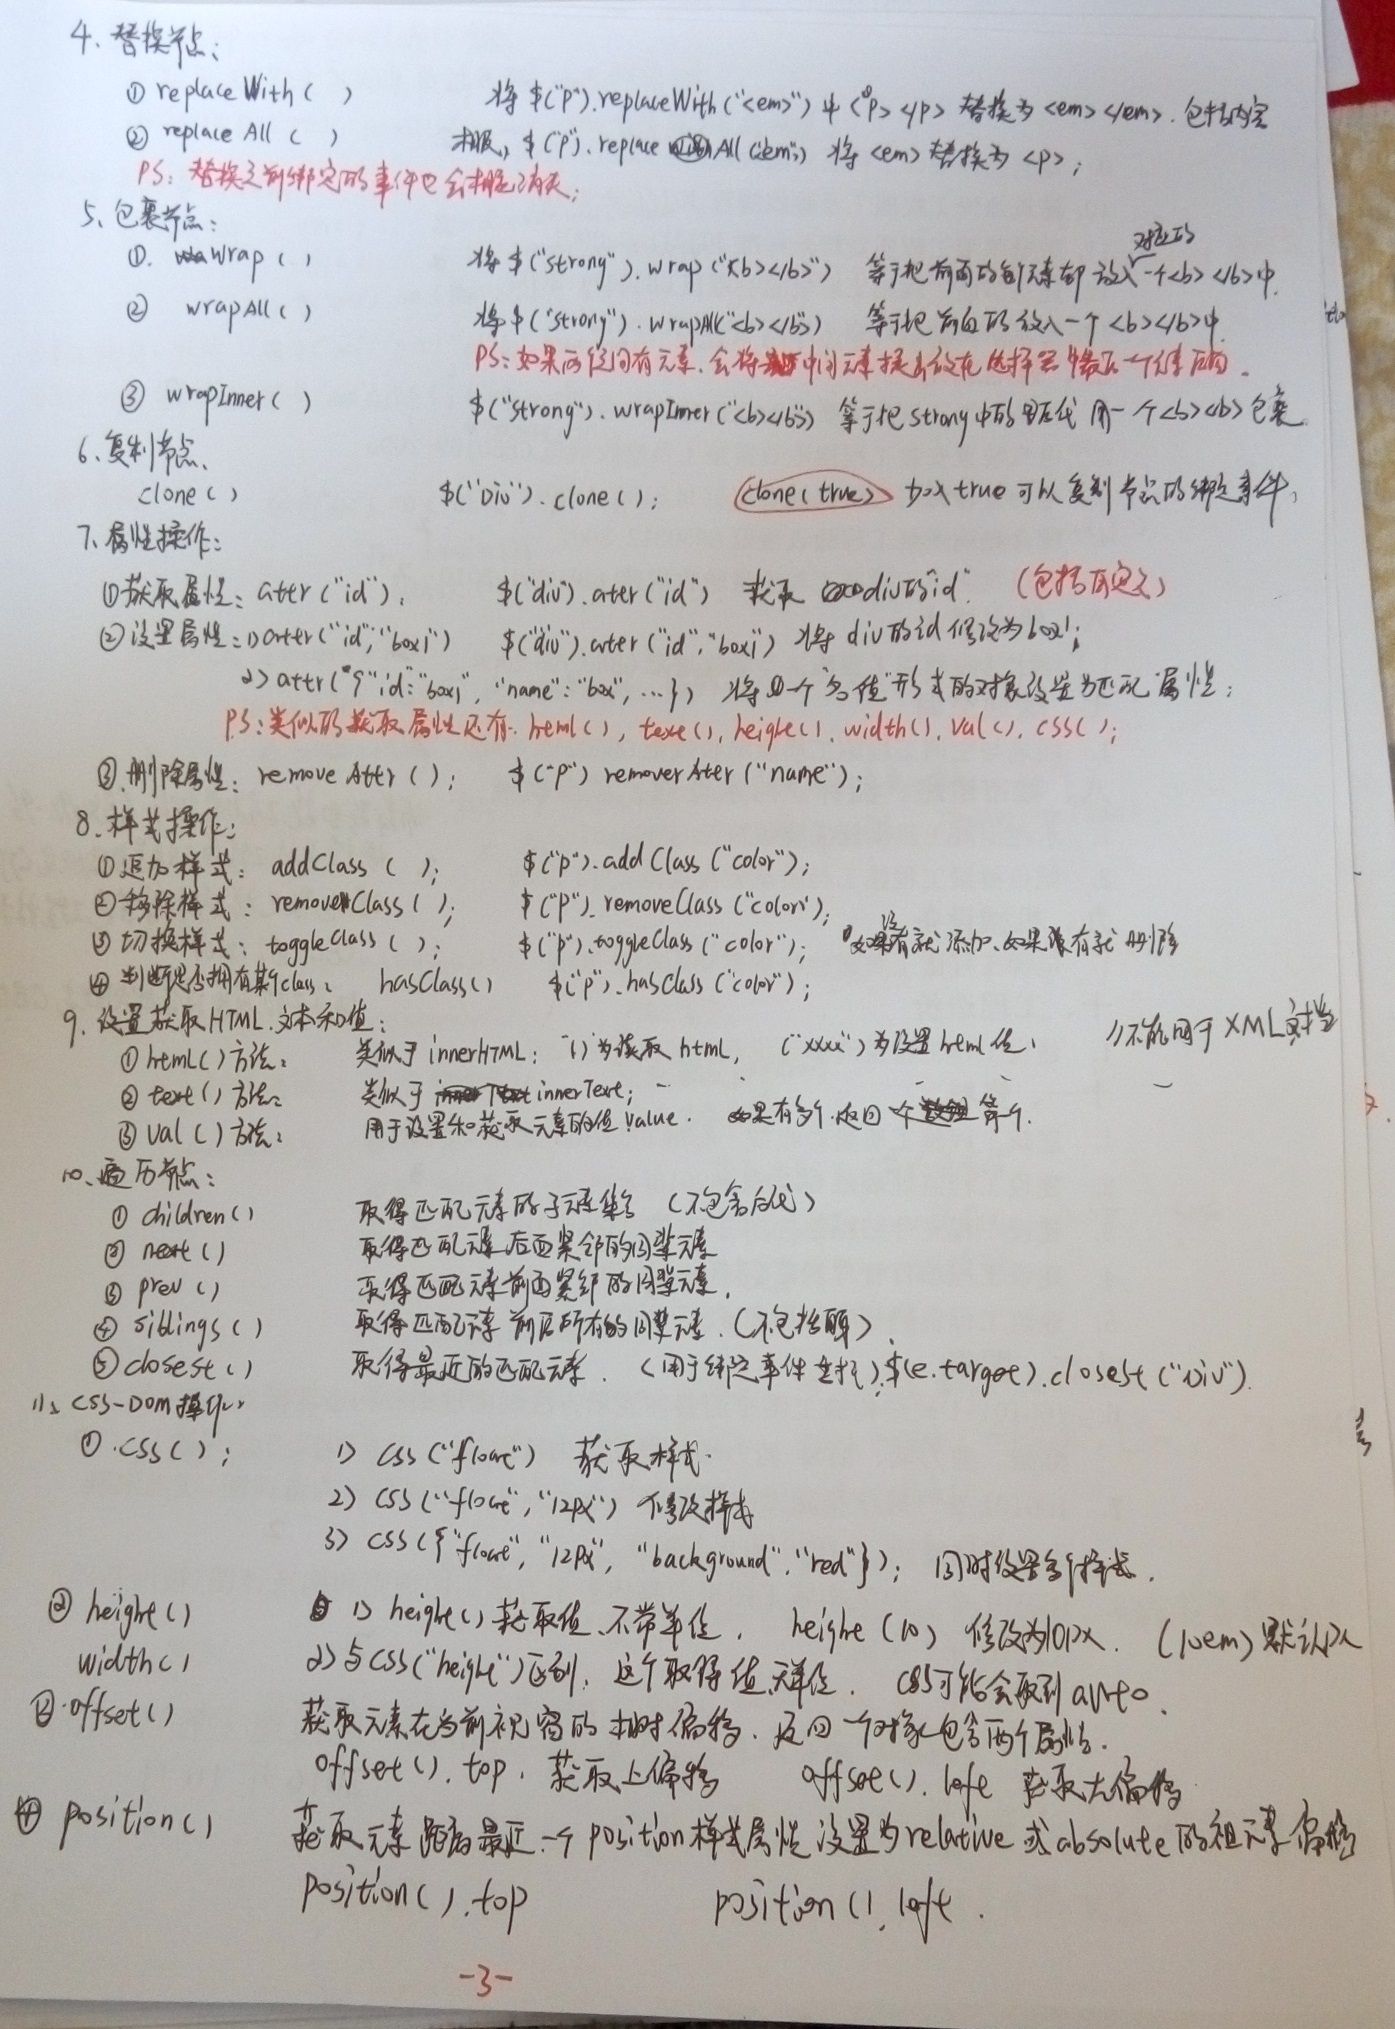 4、替换节点:
① replaceWith( ) 将 $("p").replaceWith("<em>") 中 <p></p> 替换为 <em></em>. 包括内容
② replace All ( ) 相反, $("p").replace All("em") 将 <em> 替换为 <p>;
PS: 替换之前绑定的事件也会相应消失;
5、包裹节点:
①. Wrap ( ) 将 $("strong").wrap("<b></b>") 等于把前面的每个元素都放入对应的一个<b></b>中.
② wrapAll( ) 将 $("strong").wrapAll("<b></b>") 等于把前面的放入一个<b></b>中
PS: 如果两段间有元素, 会将中间元素提出放在选择器中最后一个元素后面.
③ wrapInner( ) $("strong").wrapInner("<b></b>") 等于把strong中的后代 用一个<b><b>包裹
6、复制节点、
clone( ) $("Div").clone(); clone(true) 加入true可以复制节点的绑定事件;
7、属性操作:
①获取属性: attr("id"); $("div").attr("id") 获取 div的"id". (包括自定义)
②设置属性: 1) attr("id","box1") $("div").attr("id","box1") 将div的id修改为box1;
2> attr({"id":"box1", "name":"box", ...}) 将一个"名值"形式的对象设置为匹配属性;
PS: 类似的获取属性还有 html(), text(), height(), width(), val(), css();
③.删除属性: remove Attr ( ); $("p") remover Atter ("name");
8、样式操作:
①追加样式: addClass ( ); $("p").add Class ("color");
②移除样式: removeClass ( ); $("p").removeClass ("color");
③切换样式: toggleClass ( ); $("p").toggleClass ("color"); 如果没有就添加、如果有就删除
④ 判断是否拥有某个class: hasClass() $("p").hasClass ("color");
9、设置获取HTML.文本和值:
① html()方法: 类似于 innerHTML; "()"为读取html, ("xxxx")为设置html值, //不能用于XML文档
② text()方法: 类似于 innerText;
③ val()方法: 用于设置和获取元素的值value. 如果有多个.返回 第一个.
10、遍历节点:
① children() 取得匹配元素的子元素集合 (不包含后代)
② next() 取得匹配元素后面紧邻的同辈元素
③ prev () 取得匹配元素前面紧邻的同辈元素.
④ siblings() 取得匹配元素前后所有的同辈元素. (不包括)
⑤ closest() 取得最近的匹配元素. (用于绑定事件) $(e.target).closest("Div").
11、CSS-DOM操作:
①.css(); 1) css("float") 获取样式.
2) css("float","12px") 修改样式
3) css({"float","12px","background","red"}); 同时设置多个样式.
② height() 1) height()获取值.不带单位. height(10) 修改为10px. (10em) 默认px
width() 2) 与css("height")区别: 这个取得值,无单位. css可能会取到auto.
③.offset() 获取元素在当前视窗的相对偏移. 返回一个对象包含两个属性.
offset().top. 获取上偏移 offset().left 获取左偏移
④ position() 获取元素距离最近一个position样式属性设置为relative或absolute的祖元素偏移
position().top position().left.
-3-